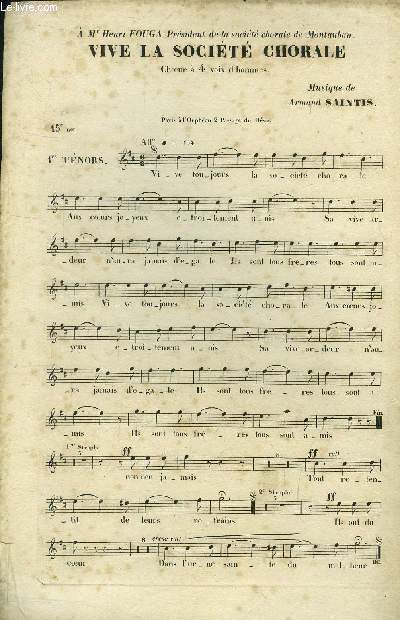 À Mr Henri FOUGA Président de la société chorale de Montauban.
VIVE LA SOCIÉTÉ CHORALE
Chœur à 4 voix d'hommes.
Musique de
Armand SAINTIS.
Paris à l'Orphéon 2 Passage du
15c net
1ers TÉNORS.
Vi_ve tou_jours la so_ciété cho_ra_le
Aux cœurs jo_yeux é_troi_tement u_nis Sa vive ar_
_deur n'au_ra jamais d'é_ga_le Ils sont tous frè_res tous sont a_
_mis Vi_ve tou_jours la so_ciété cho_ra_le Aux cœurs jo_
_yeux é_troi_tement u_nis Sa vive ar_deur n'au_
_ra jamais d'é_ga_le Ils sont tous frè_res tous sont a_
_mis Ils sont tous frè_res tous sont a_mis
Fin
1re Strophe
ff ff
ja_mais Tout re_ten_
_tit de leurs re_frains
2e Strophe
ff
Ils ont du
8
cœur Dans l'om_ du mal_heur
DC.